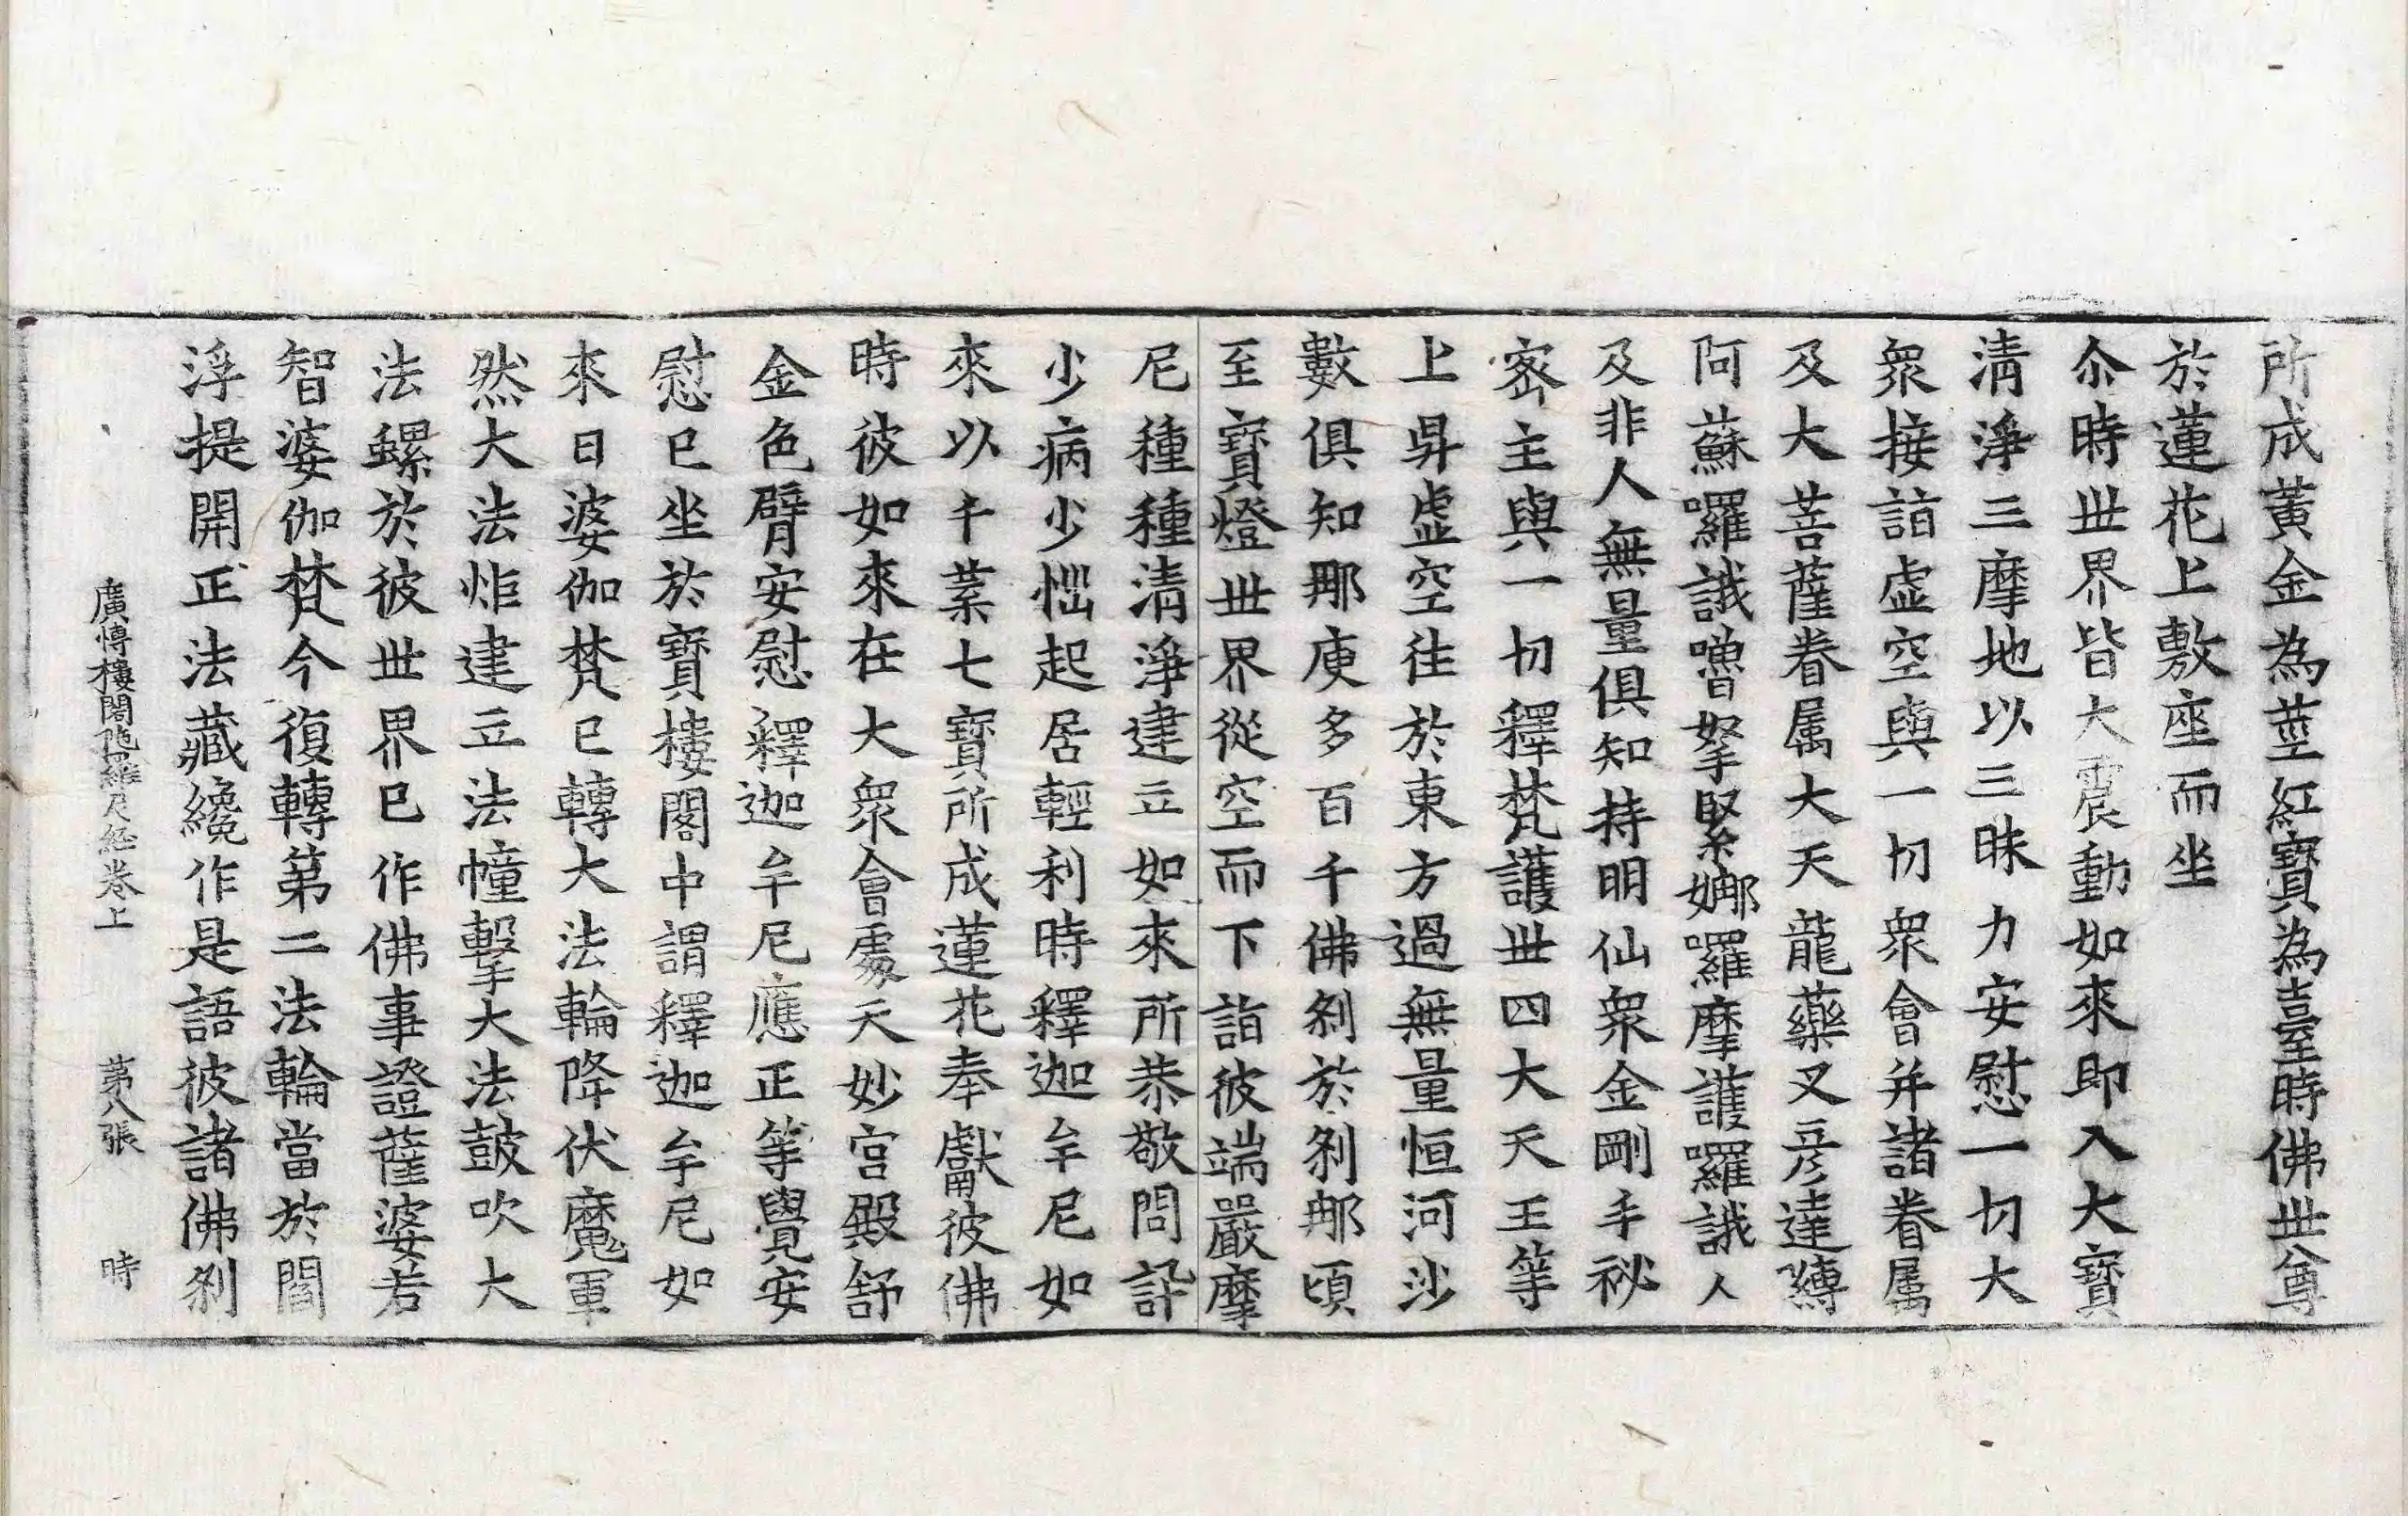 所成黃金為莖紅寶為臺時佛世尊
於蓮花上敷座而坐
尒時世界皆大震動如來即入大寶
清淨三摩地以三昧力安慰一切大
衆接詣虛空與一切衆會并諸眷属
及大菩薩眷属大天龍藥叉彦達縛
阿蘇囉誐嚕拏緊娜囉摩護囉誐人
及非人無量俱知持明仙衆金剛手祕
密主與一切釋梵護世四大天王等
上昇虛空往於東方過無量恒河沙
數俱知那庾多百千佛剎於剎那頃
至寶燈世界從空而下詣彼端嚴摩
尼種種清淨建立如來所恭敬問訊
少病少惱起居輕利時釋迦牟尼如
來以千葉七寶所成蓮花奉獻彼佛
時彼如來在大衆會處天妙宮殿舒
金色臂安慰釋迦牟尼應正等覺安
慰已坐於寶樓閣中謂釋迦牟尼如
來曰婆伽梵已轉大法輪降伏魔軍
然大法炬建立法幢擊大法鼓吹大
法螺於彼世界已作佛事證薩婆若
智婆伽梵今復轉第二法輪當於閻
浮提開正法藏纔作是語彼諸佛剎
廣博樓閣陁羅尼経卷上 第八張 時